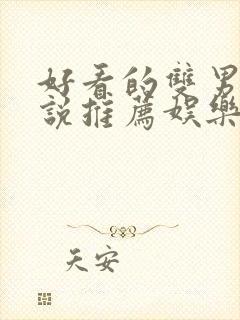 好看的雙男
說推薦娛樂
天安